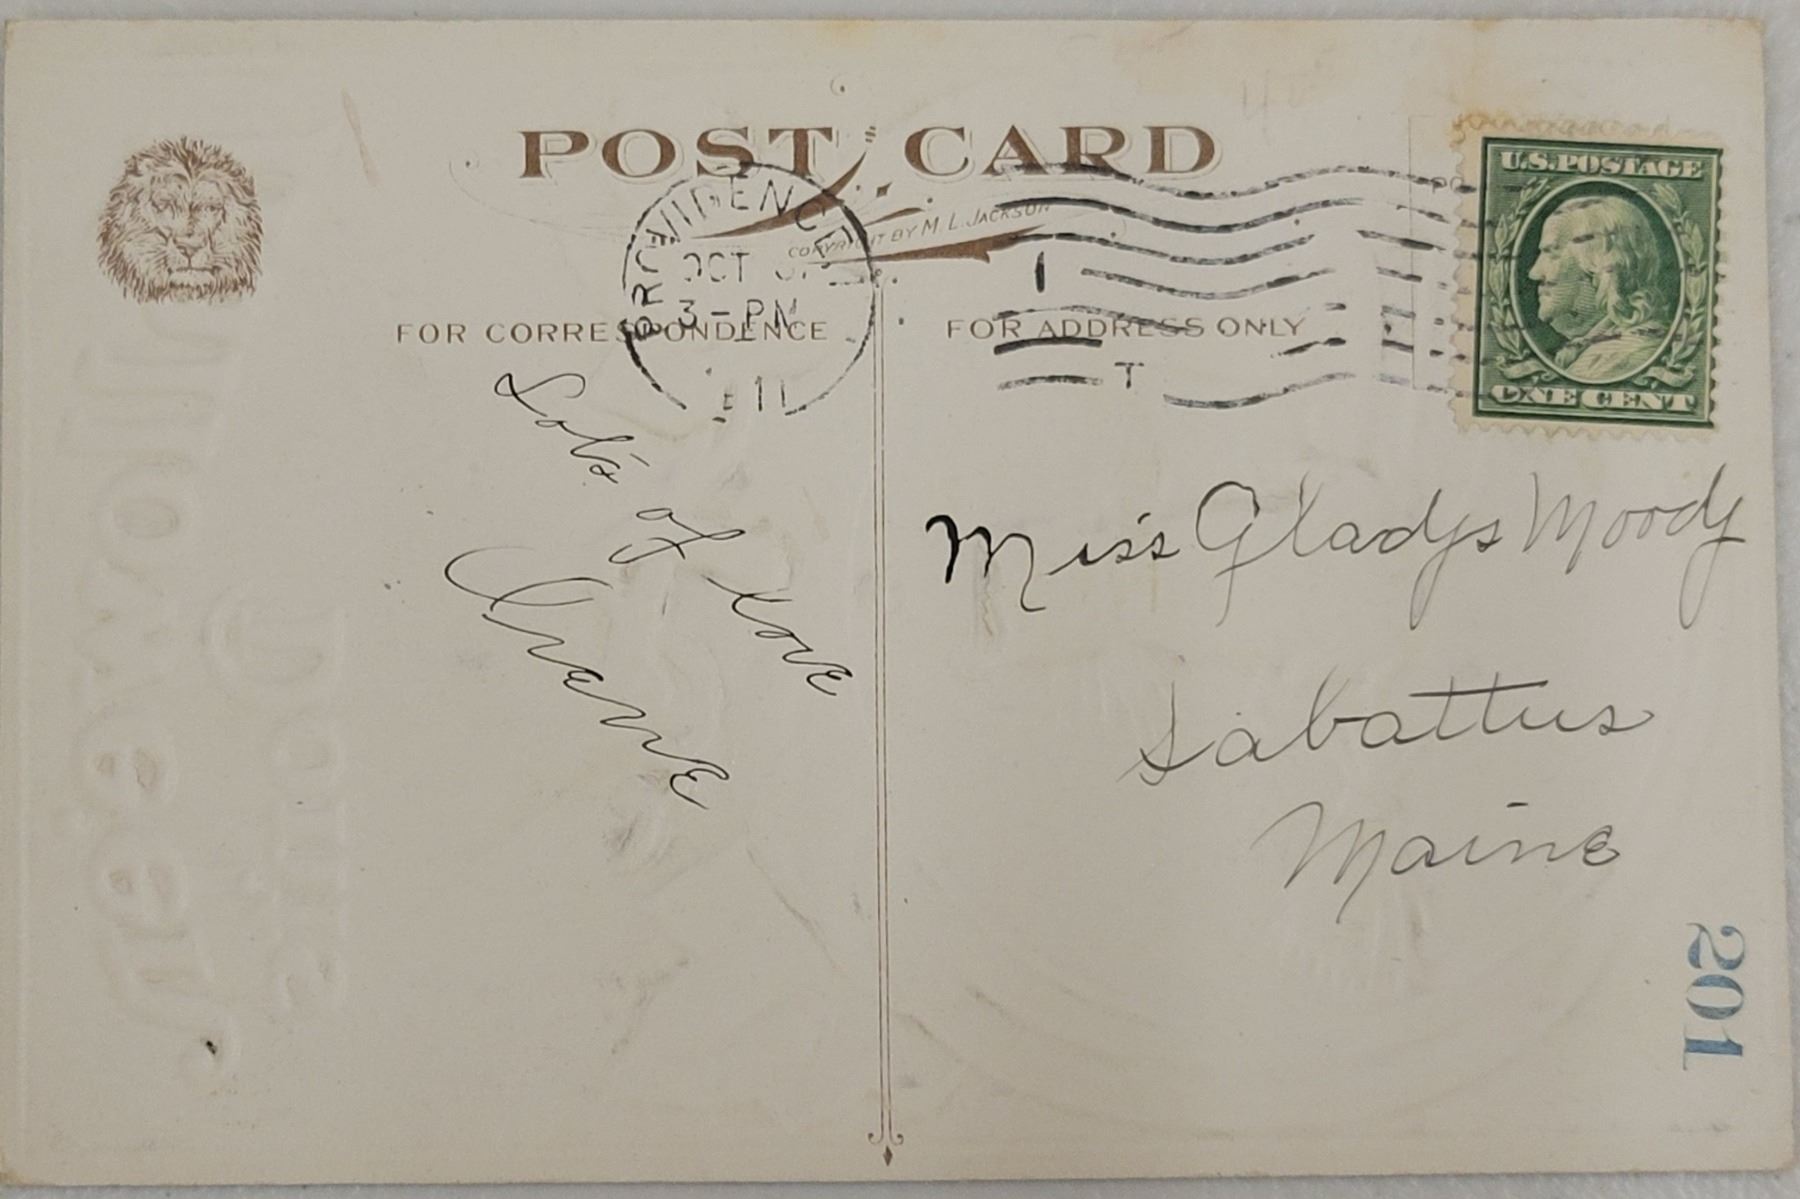 POST CARD
COPYRIGHT BY M. L. JACKSON
U.S. POSTAGE
ONE CENT
PROVIDENCE
OCT
3-PM
11
1
T
FOR CORRESPONDENCE
FOR ADDRESS ONLY
Lob's of Love
Irene
Miss Gladys Moody
Sabattus
Maine
201